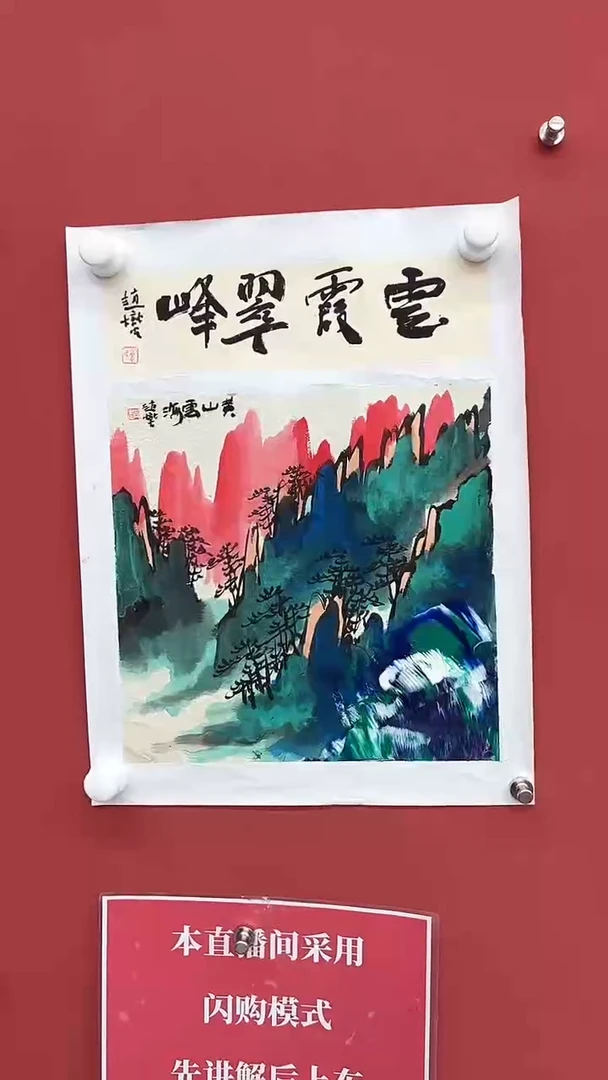 雲霞翠峰
黄山雲海
本直播间采用
闪购模式
先讲解后上车